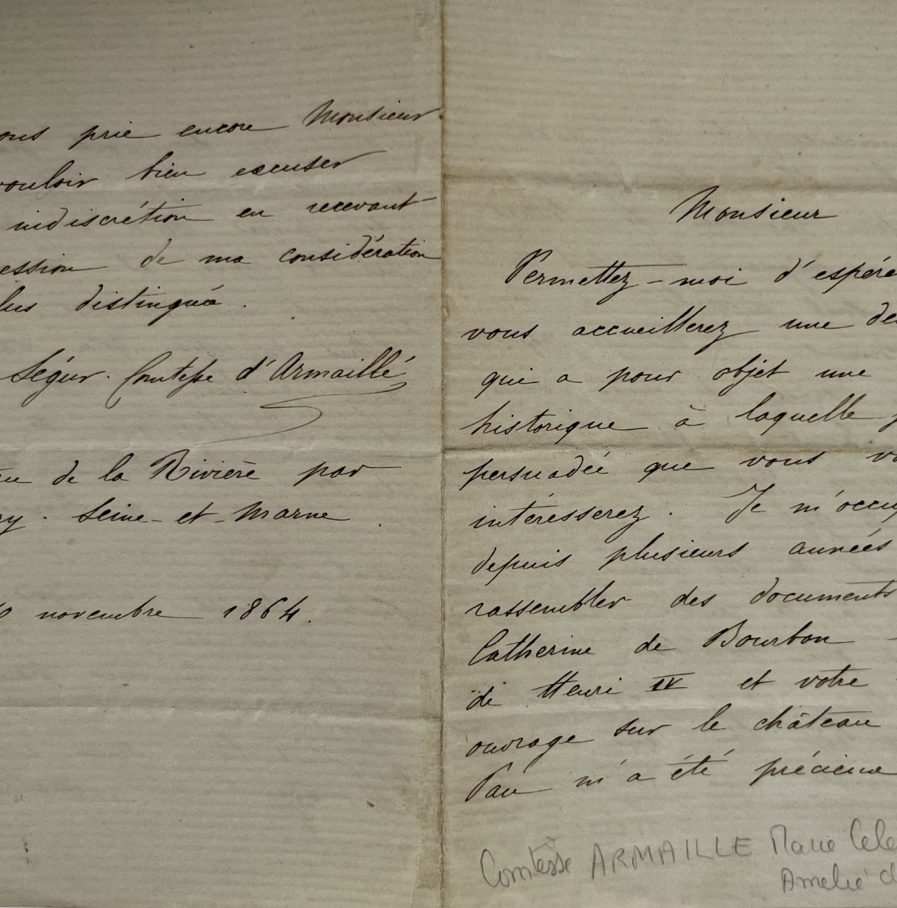 ous prie encore Monsieur
vouloir bien excuser
indiscrétion en recevant
ession de ma considération
lus distinguée.
Ségur. Comtesse d'Armaillé
de la Rivière par
ry. Seine-et-Marne.
novembre 1864.
Monsieur
Permettez-moi d'espére
vous accueillerez une de
qui a pour objet une
historique à laquelle
persuadée que vous vo
intéresserez. Je m'occup
depuis plusieurs années
rassembler des documents
Catherine de Bourbon
de Henri IV et votre
ouvrage sur le château
Pau m'a été précieux
Comtesse ARMAILLE Marie Cele
Amelie d